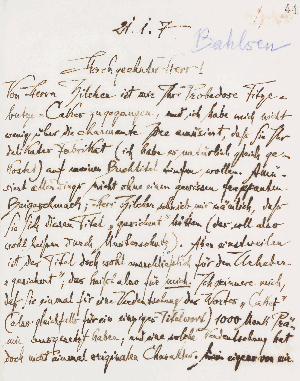 41
21. I. 7
Bahlsen
Hochgeehrter Herr!
Von Herrn ist mir Ihre Fitze-
butze- Cakes zugegangen, und ich habe mich nicht
wenig über die charmante Idee amüsiert, dass Sie Ihr
Fabrikat (ich habe es natürlich gleich ge-
) auf meinen Buchtitel wollen. Aller-
dings nicht ohne einen gewissen
Beigeschmack; Herr schrieb mir nämlich, dass
Sie sich diesen Titel "gesichert" hätten (das soll also
wohl heissen durch Musterschutz). Aber einstweilen
ist der Titel doch wohl für den Urheber
"gesichert", das also für mich. Ich erinnere mich,
dass Sie einmal für die Verdeutschung des Wortes "Cakes"
(also gleichfalls für ein einziges Titelwort) 1000 Mark Prä-
mie ausgesetzt haben; und eine solche Verdeutschung hat
doch nicht einmal originalen Charakter.